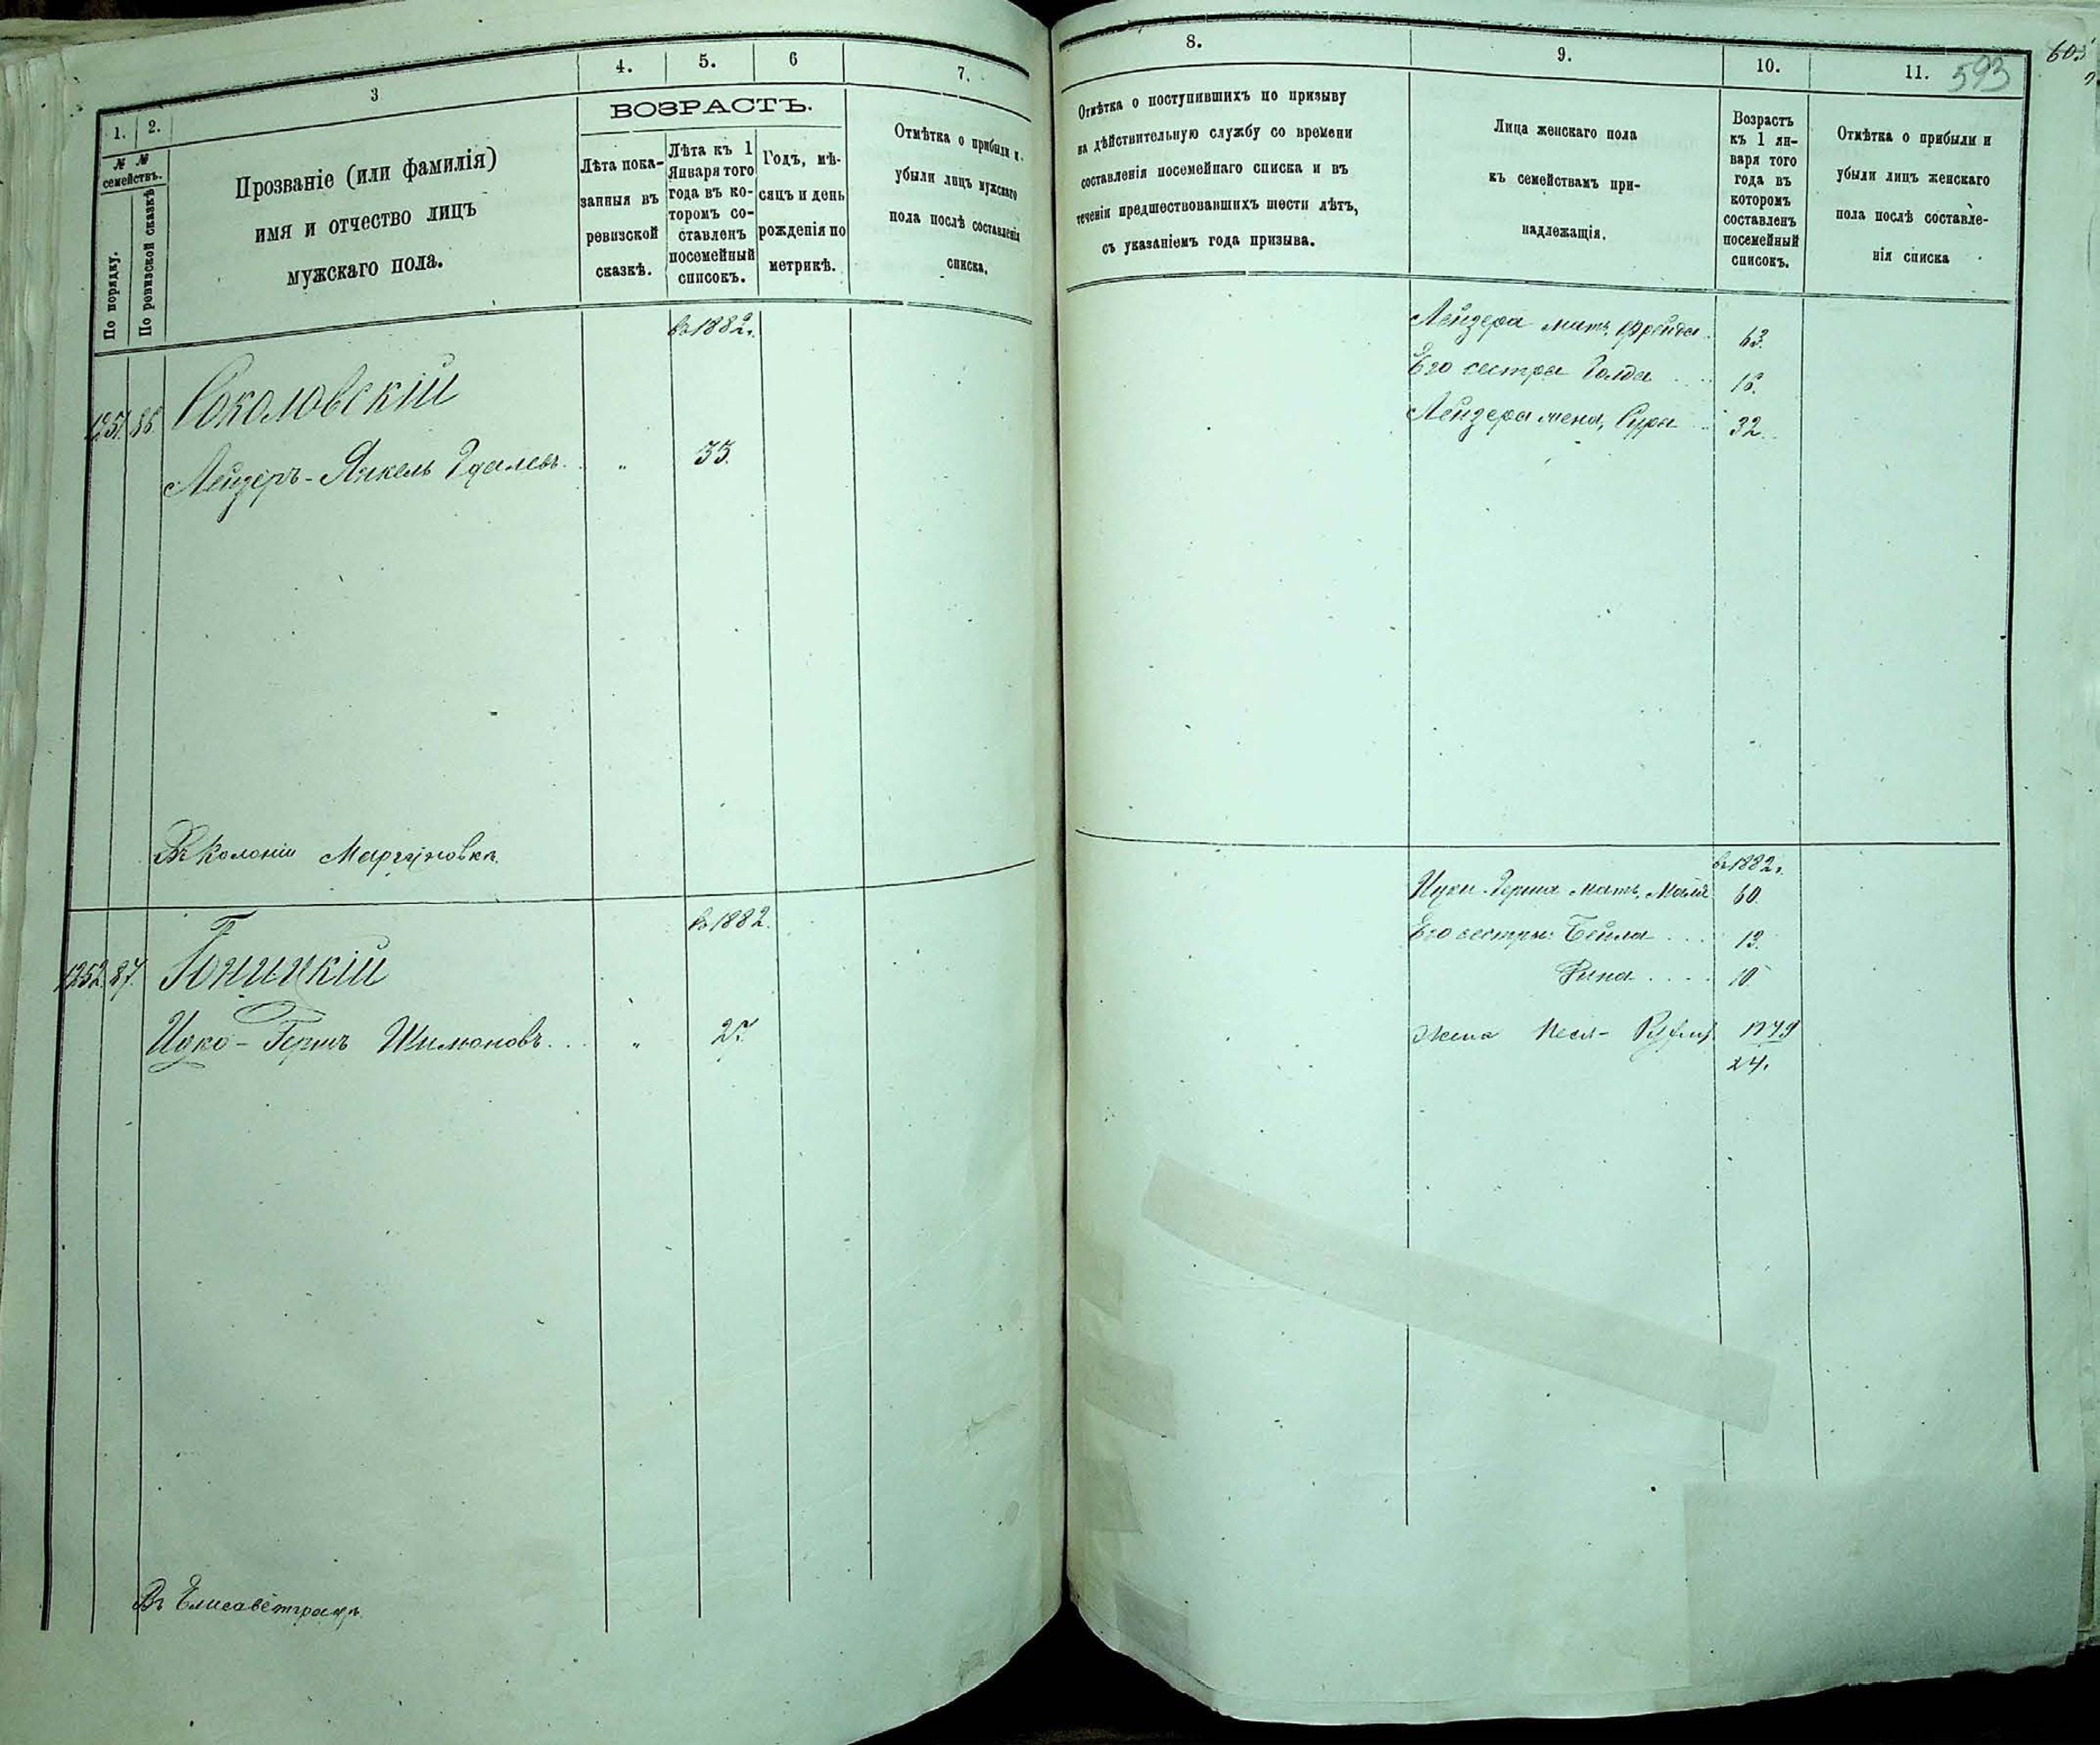 1. 2. 3 4. 5. 6 7.
№ №
семействъ.
По порядку.
По ревизской сказкѣ
Прозваніе (или фамилія)
имя и отчество лицъ
мужскаго пола.
ВОЗРАСТЪ.
Лѣта пока-
занныя въ
ревизской
сказкѣ.
Лѣта къ 1
Января того
года въ ко-
торомъ со-
ставленъ
посемейный
списокъ.
Годъ, мѣ-
сяцъ и день
рожденія по
метрикѣ.
Отмѣтка о прибыли и
убыли лицъ мужскаго
пола послѣ составленія
списка.
въ 1882 г.
1251. 86. Соколовскій
Лейзеръ-Янкель .. 33.
Въ Колоніи
въ 1882.
1252. 87. Гоницкій
Ицко-Гершъ Шилюновъ...
Въ Елисаветградѣ
8. 9. 10. 11. 593
Отмѣтка о поступившихъ по призыву
на дѣйствительную службу со времени
составленія посемейнаго списка и въ
теченіи предшествовавшихъ шести лѣтъ,
съ указаніемъ года призыва.
Лица женскаго пола
къ семействамъ при-
надлежащія.
Возрастъ
къ 1 ян-
варя того
года въ
которомъ
составленъ
посемейный
списокъ.
Отмѣтка о прибыли и
убыли лицъ женскаго
пола послѣ составле-
нія списка
Лейзера мать, Фрейда 63.
Его сестра Голда .... 16.
Лейзера жена, Сура .. 32.
въ 1882 г.
Ицки-Герша мать, Малка 60.
Его сестры: Бейла .... 13.
.... 10.
Жена Песя-
24.